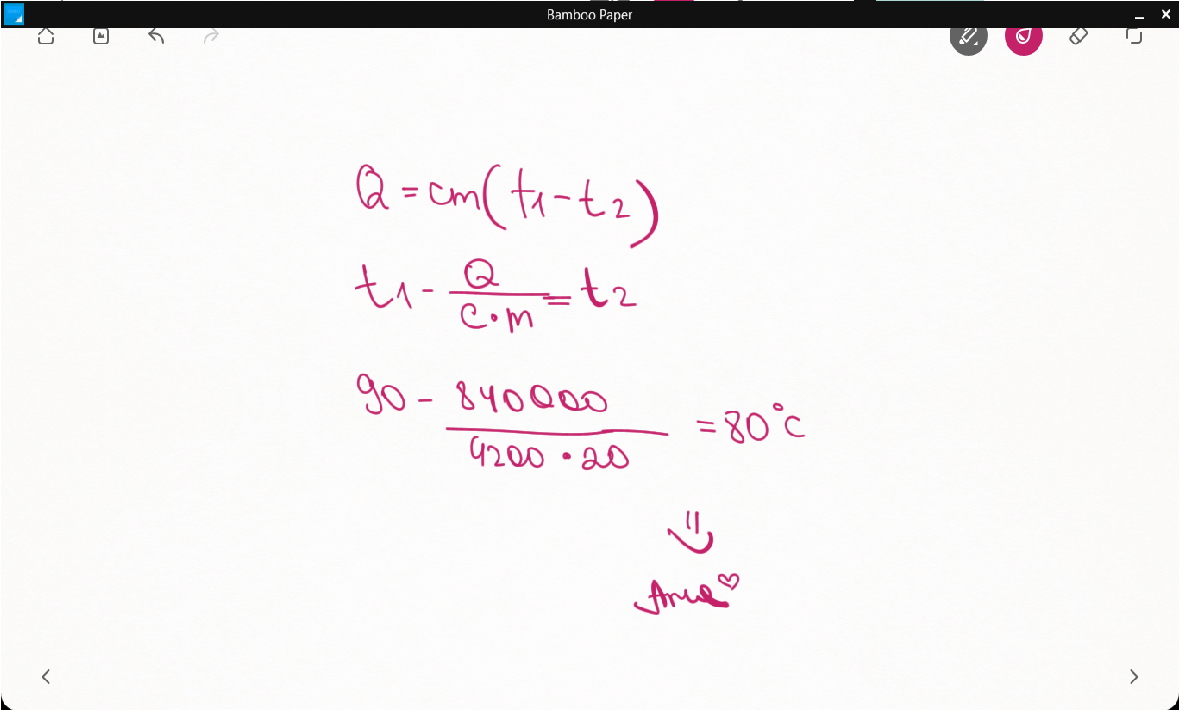 Bamboo Paper
Q = cm(t1 - t2)
t1 - Q/(c·m) = t2
90 - 840000/(4200·20) = 80°C